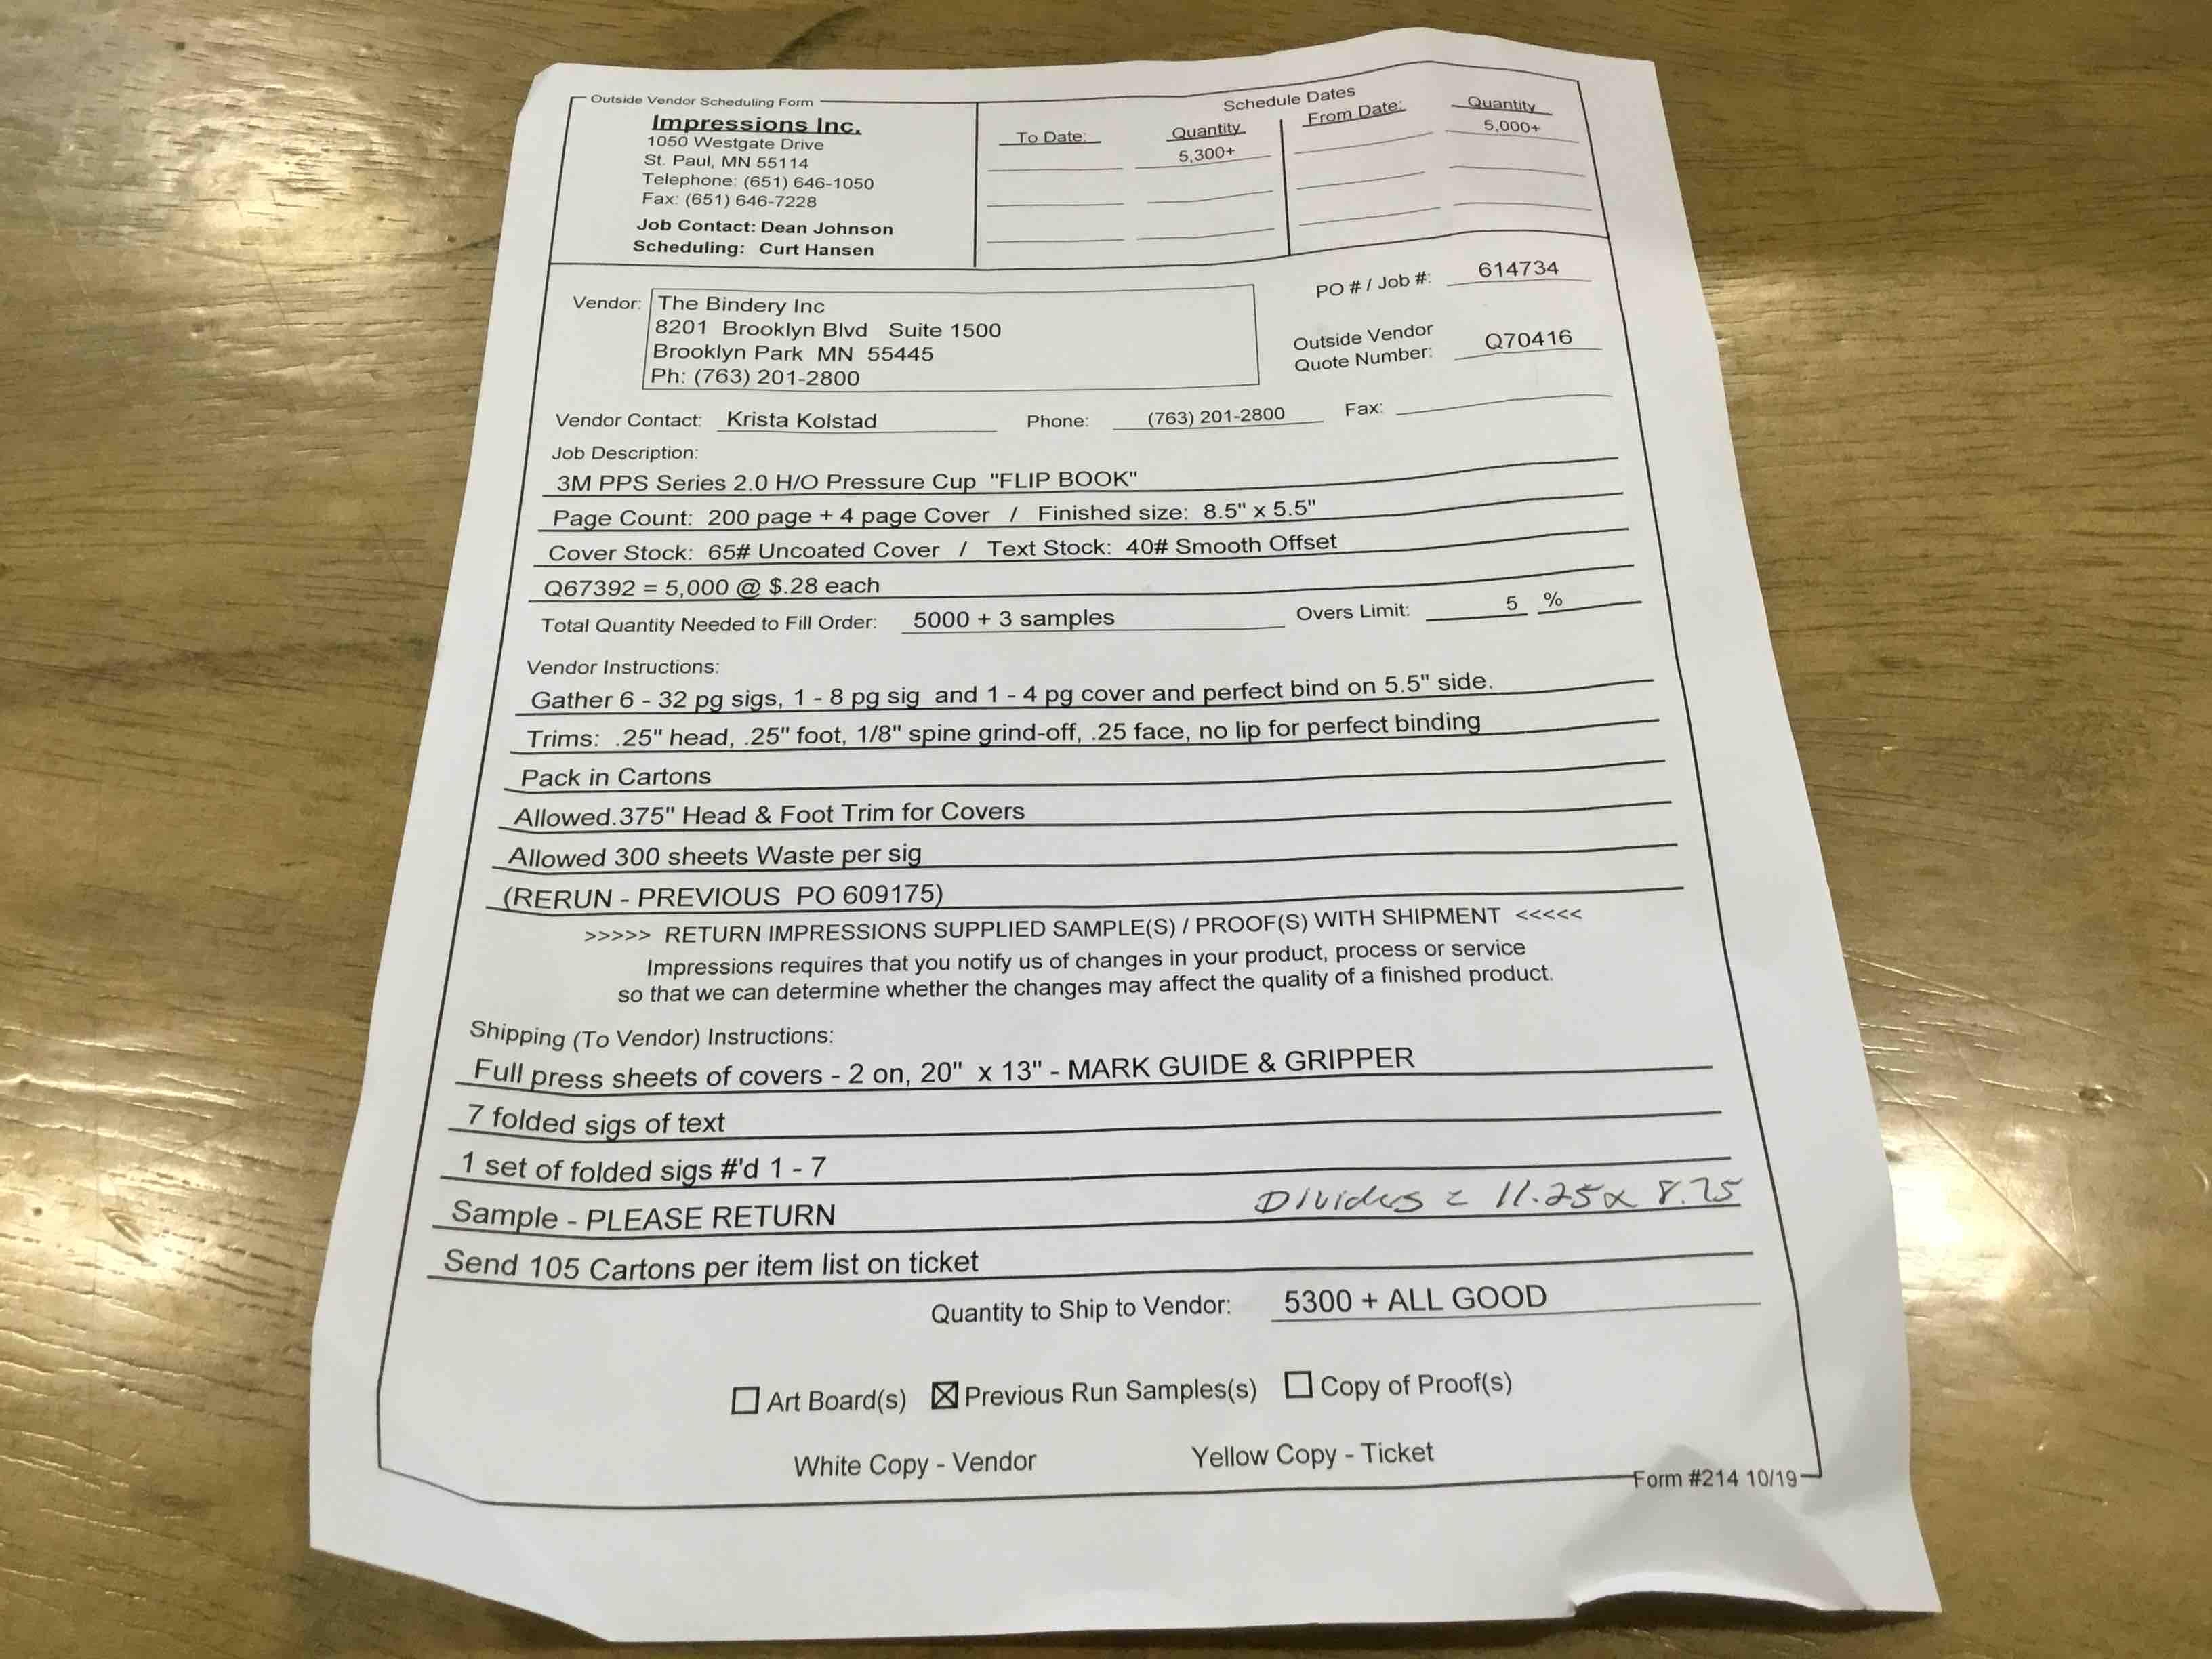 Outside Vendor Scheduling Form
Impressions Inc.
1050 Westgate Drive
St. Paul, MN 55114
Telephone: (651) 646-1050
Fax: (651) 646-7228
Job Contact: Dean Johnson
Scheduling: Curt Hansen
Schedule Dates
To Date: Quantity From Date: Quantity
5,300+ 5,000+
PO # / Job #: 614734
Vendor: The Bindery Inc
8201 Brooklyn Blvd Suite 1500
Brooklyn Park MN 55445
Ph: (763) 201-2800
Outside Vendor
Quote Number: Q70416
Vendor Contact: Krista Kolstad Phone: (763) 201-2800 Fax:
Job Description:
3M PPS Series 2.0 H/O Pressure Cup "FLIP BOOK"
Page Count: 200 page + 4 page Cover / Finished size: 8.5" x 5.5"
Cover Stock: 65# Uncoated Cover / Text Stock: 40# Smooth Offset
Q67392 = 5,000 @ $.28 each
Total Quantity Needed to Fill Order: 5000 + 3 samples Overs Limit: 5 %
Vendor Instructions:
Gather 6 - 32 pg sigs, 1 - 8 pg sig and 1 - 4 pg cover and perfect bind on 5.5" side.
Trims: .25" head, .25" foot, 1/8" spine grind-off, .25 face, no lip for perfect binding
Pack in Cartons
Allowed.375" Head & Foot Trim for Covers
Allowed 300 sheets Waste per sig
(RERUN - PREVIOUS PO 609175)
>>>>> RETURN IMPRESSIONS SUPPLIED SAMPLE(S) / PROOF(S) WITH SHIPMENT <<<<<
Impressions requires that you notify us of changes in your product, process or service
so that we can determine whether the changes may affect the quality of a finished product.
Shipping (To Vendor) Instructions:
Full press sheets of covers - 2 on, 20" x 13" - MARK GUIDE & GRIPPER
7 folded sigs of text
1 set of folded sigs #'d 1 - 7
Sample - PLEASE RETURN = 11.25 x 8.75
Send 105 Cartons per item list on ticket
Quantity to Ship to Vendor: 5300 + ALL GOOD
Art Board(s) Previous Run Samples(s) Copy of Proof(s)
White Copy - Vendor Yellow Copy - Ticket
Form #214 10/19